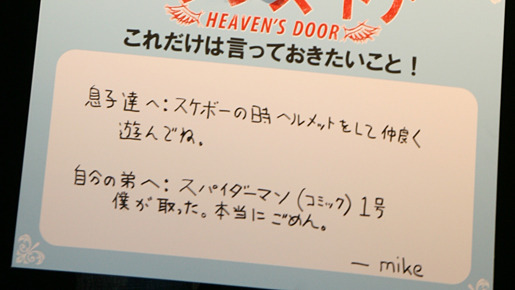 HEAVEN'S DOOR
これだけは言っておきたいこと！
息子達へ：スケボーの時ヘルメットをして仲良く
遊んでね。
自分の弟へ：スパイダーマン（コミック）1号
僕が取った。本当にごめん。
— mike